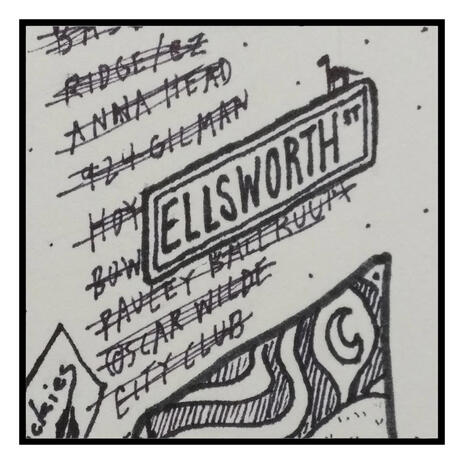 RIDGE/CZ
ANNA HEAD
924 GILMAN
ELLSWORTH ST
HOY
BOW
PAULEY BALLROOM
OSCAR WILDE
CITY CLUB
ckies